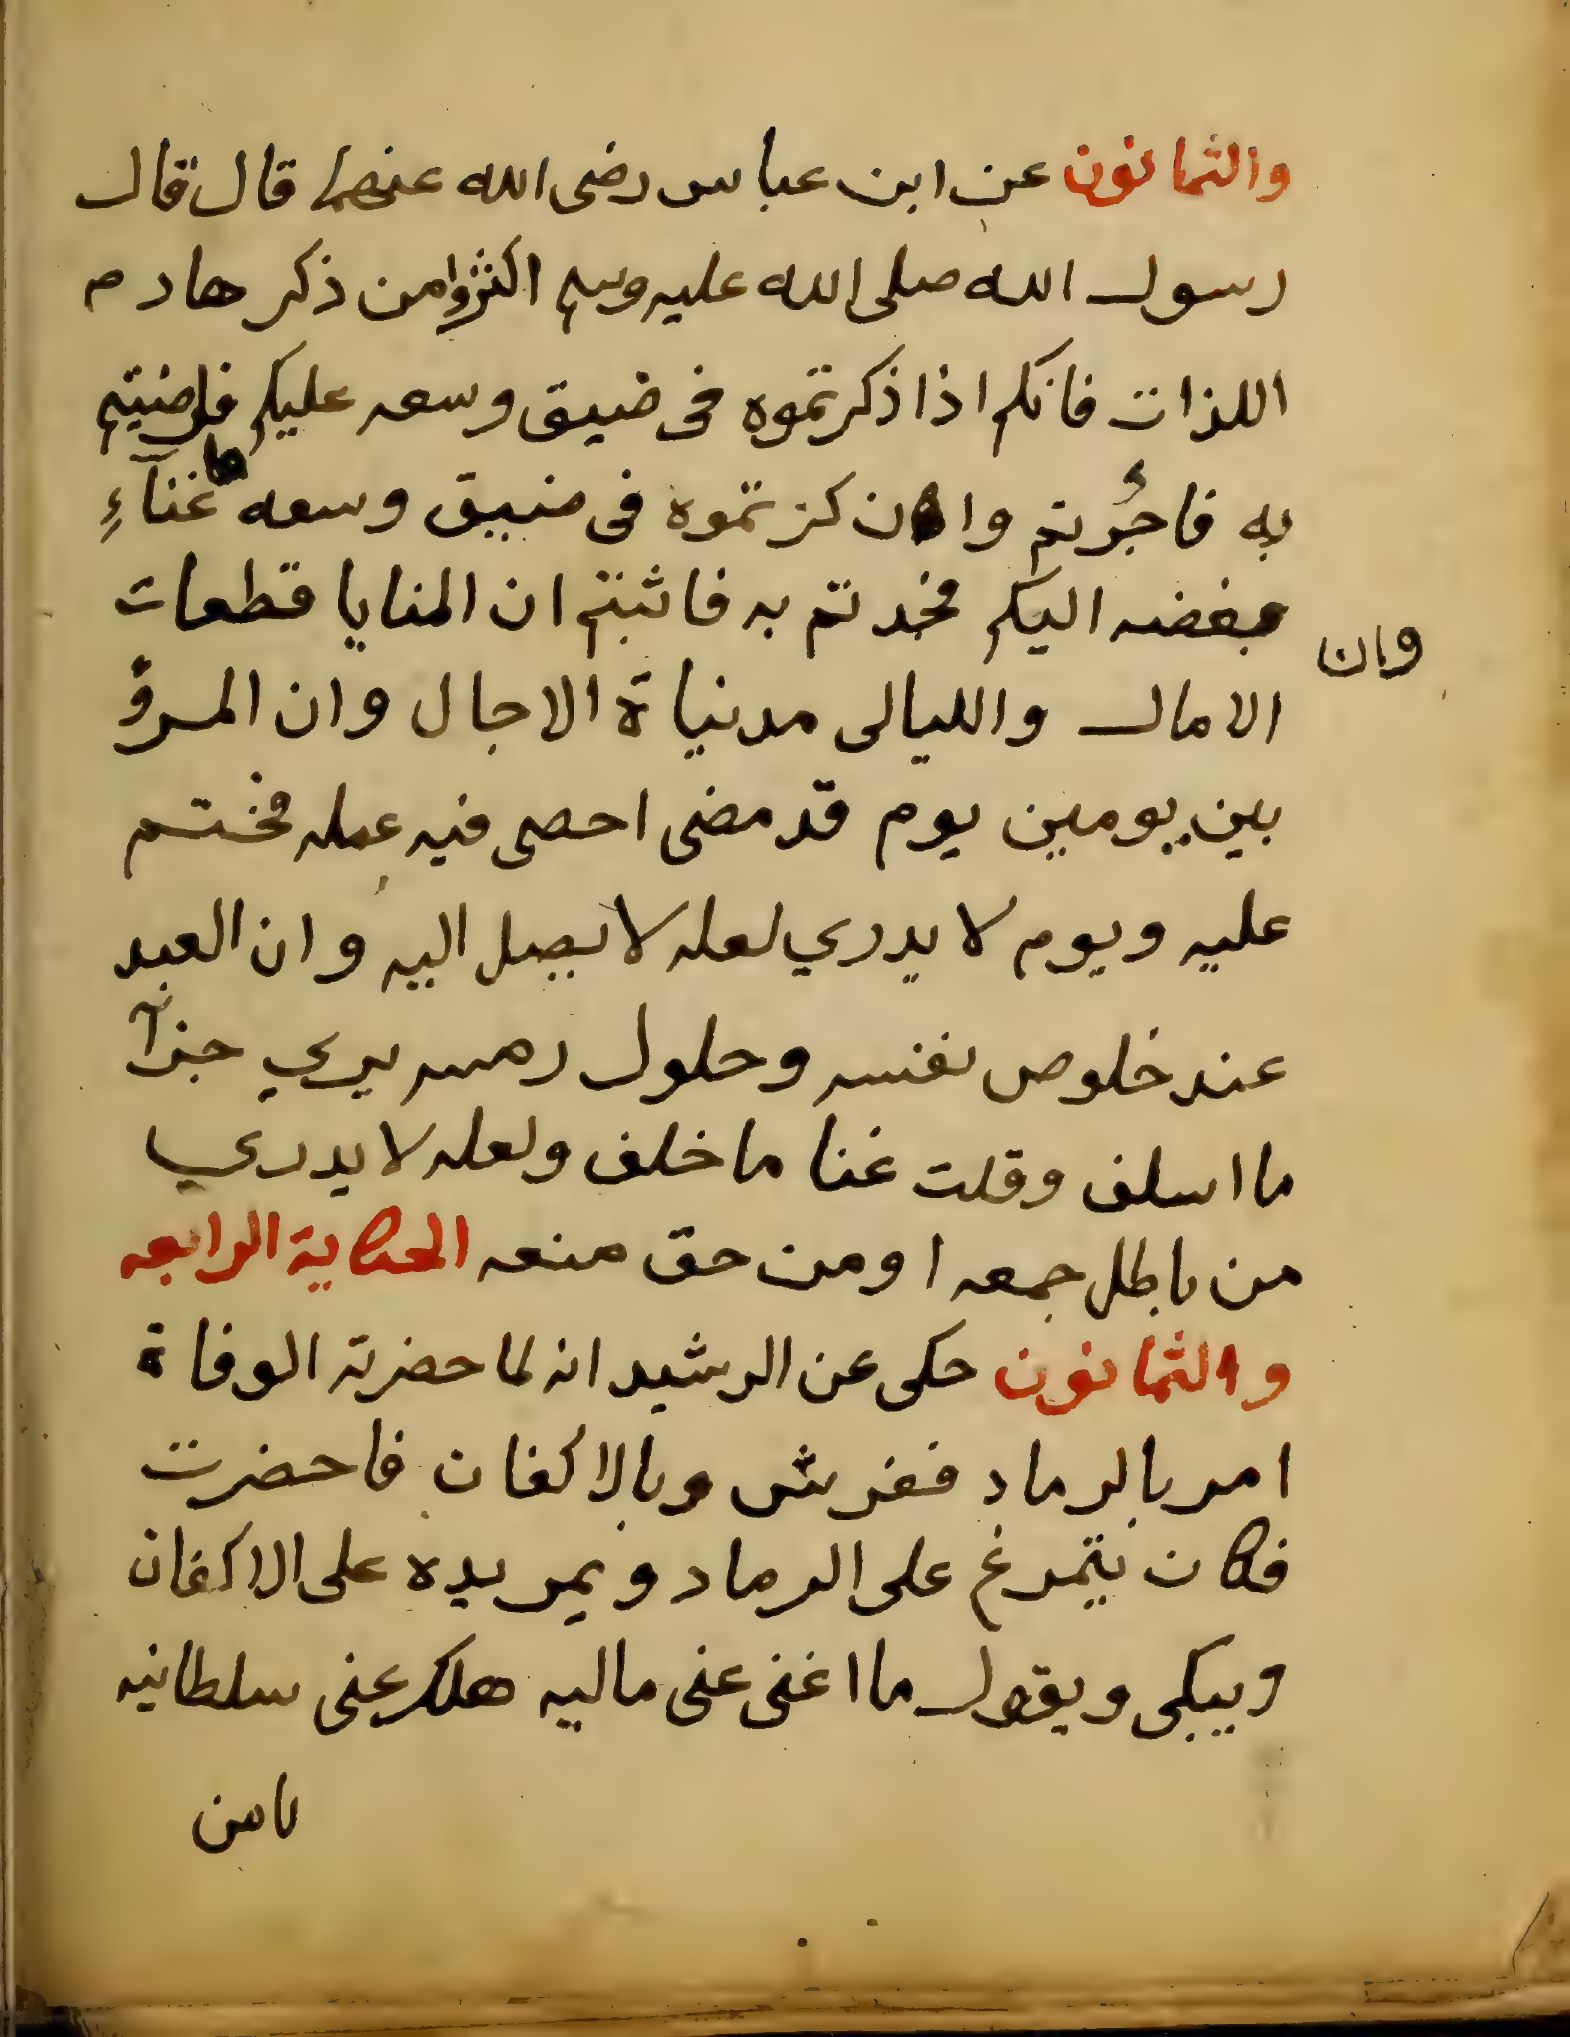 والثمانون عن ابن عباس رضى الله عنهما قال قال
رسول الله صلى الله عليه وسلم اكثروا من ذكر هادم
اللذات فانكم اذا ذكرتموه فى ضيق وسعه عليكم فرضيتم
به فاجُرتم وان ذكرتموه فى ضيق وسعه غنآءٍ
بغضه اليكم فجدتم به فاثبتم ان المنايا قطعات
وان
الامال والليالى مدنياة الاجال وان المرؤ
بين يومين يوم قد مضى احصى فيه عمله فختم
عليه ويوم لا يدري لعله لا يصل اليه وان العبد
عند خلوص نفسه وحلول رمسه يري جزآ
ما اسلف وقلت غنا ما خلف ولعله لا يدري
من باطل جمعه او من حق منعه الحكاية الرابعه
والثمانون حكى عن الرشيد انه لما حضرته الوفاة
امر بالرماد ففرش وبالاكفان فاحضرت
فكان يتمرغ على الرماد ويمر يده على الاكفان
ويبكى ويقول ما اغنى عنى ماليه هلك عنى سلطانيه
يامن